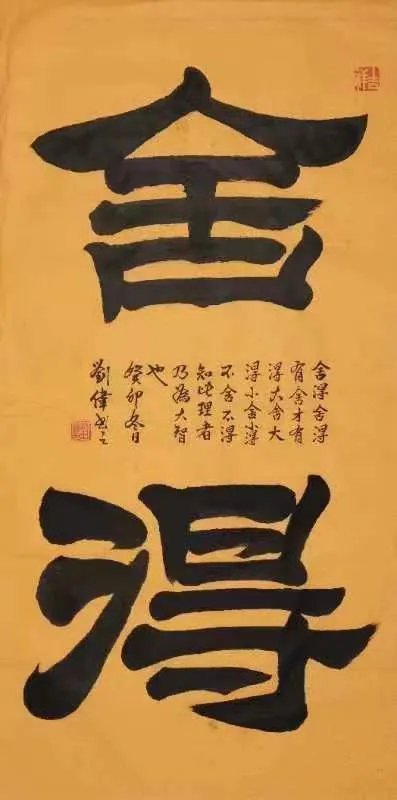 舍
舍得舍得
有舍才有
得大舍大
得小舍小得
不舍不得
知此理者
乃為大智
也
癸卯冬日
劉偉书之
得